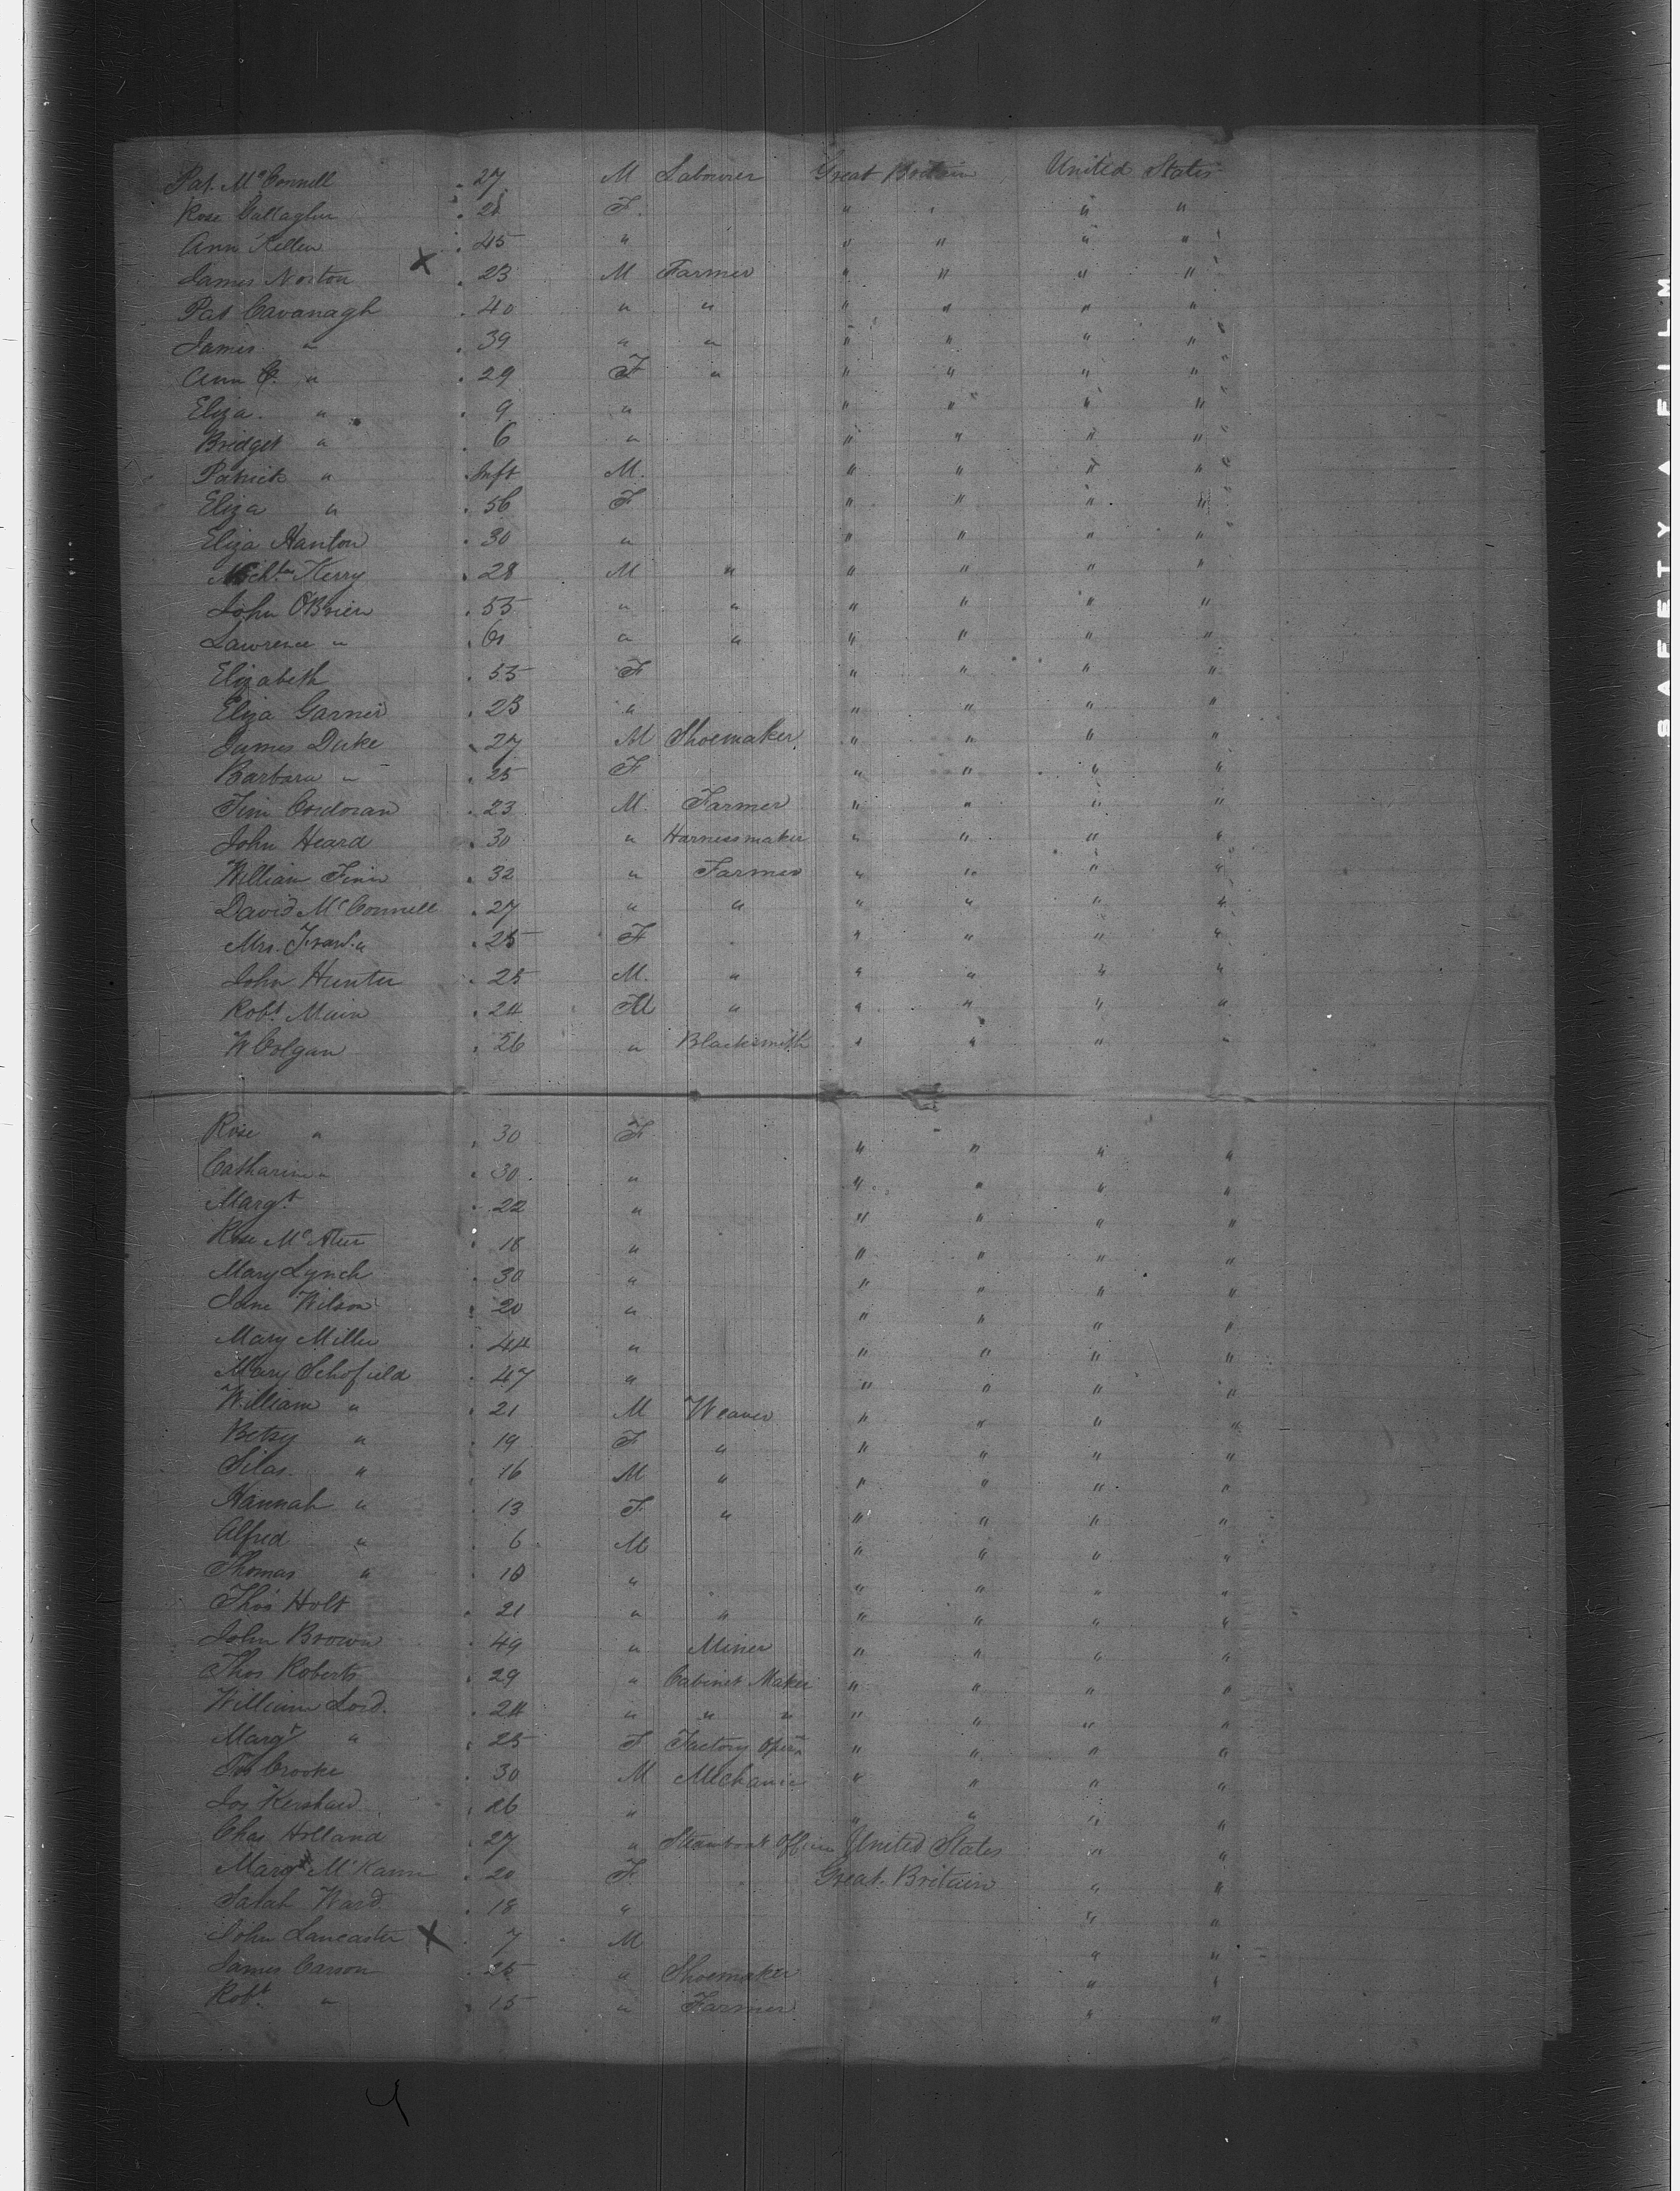 Pat. McConnell 27 M Labourer Great Britain United States
Rose Gallagher 28 F. " " " "
Ann Kellen 45 " " " " "
James Norton X 23 M Farmer " " " "
Pat Cavanagh 40 " " " " " "
James " 39 " " " " " "
Ann C. " 29 F " " " " "
Eliza. " 9 " " " " "
Bridget " 6 " " " " "
Patrick " Inft M. " " " "
Eliza " 56 F " " " "
Eliza Hanlon 30 " " " " "
Kerry 28 M " " " " "
John O'Brien 55 " " " " " "
Lawrence " " " " " " "
Elizabeth 55 F " " " "
Eliza Garner 23 " " " " "
James Duke 27 M Shoemaker " " " "
Barbara " 25 F " " " "
Tim Corcoran 23 M. Farmer " " " "
John Heard 30 " Harnessmaker " " " "
William Finn 32 " Farmer " " " "
David McConnell 27 " " " " " "
Mrs. " 25 F " " " "
John Hunter 25 M. " " " " "
Robt Main 24 M " " " " "
W Colgan 26 " Blacksmith " " " "
Rose " 30 F " " " "
Catharine " 30 " " " " "
Margt 22 " " " " "
Rose McAteer 18 " " " " "
Mary Lynch 30 " " " " "
Jane Wilson 20 " " " " "
Mary Miller 44 " " " " "
Mary Schofield 47 " " " " "
William " 21 M Weaver " " " "
Betsy " 19 F " " " " "
Silas " 16 M " " " " "
Hannah " 13 F " " " " "
Alfred " 6 M " " " "
Thomas " 10 " " " " "
Thos Holt 21 " " " " " "
John Brown 49 " Miner " " " "
Thos Roberts 29 " Cabinet Maker " " " "
William Lord. 24 " " " " " " "
Margt " 25 F Factory Opern " " " "
Crooke 30 M Mechanic " " " "
Jos Kershaw 26 " " " " "
Chas Holland 27 " Steamboat Officer United States " "
Margt McKann 20 F Great Britain " "
Sarah Ward 18 " " "
John Lancaster X 7 M " "
James Carson 25 " Shoemaker " "
Robt. " 15 " Farmer " "
SAFETY A FILM